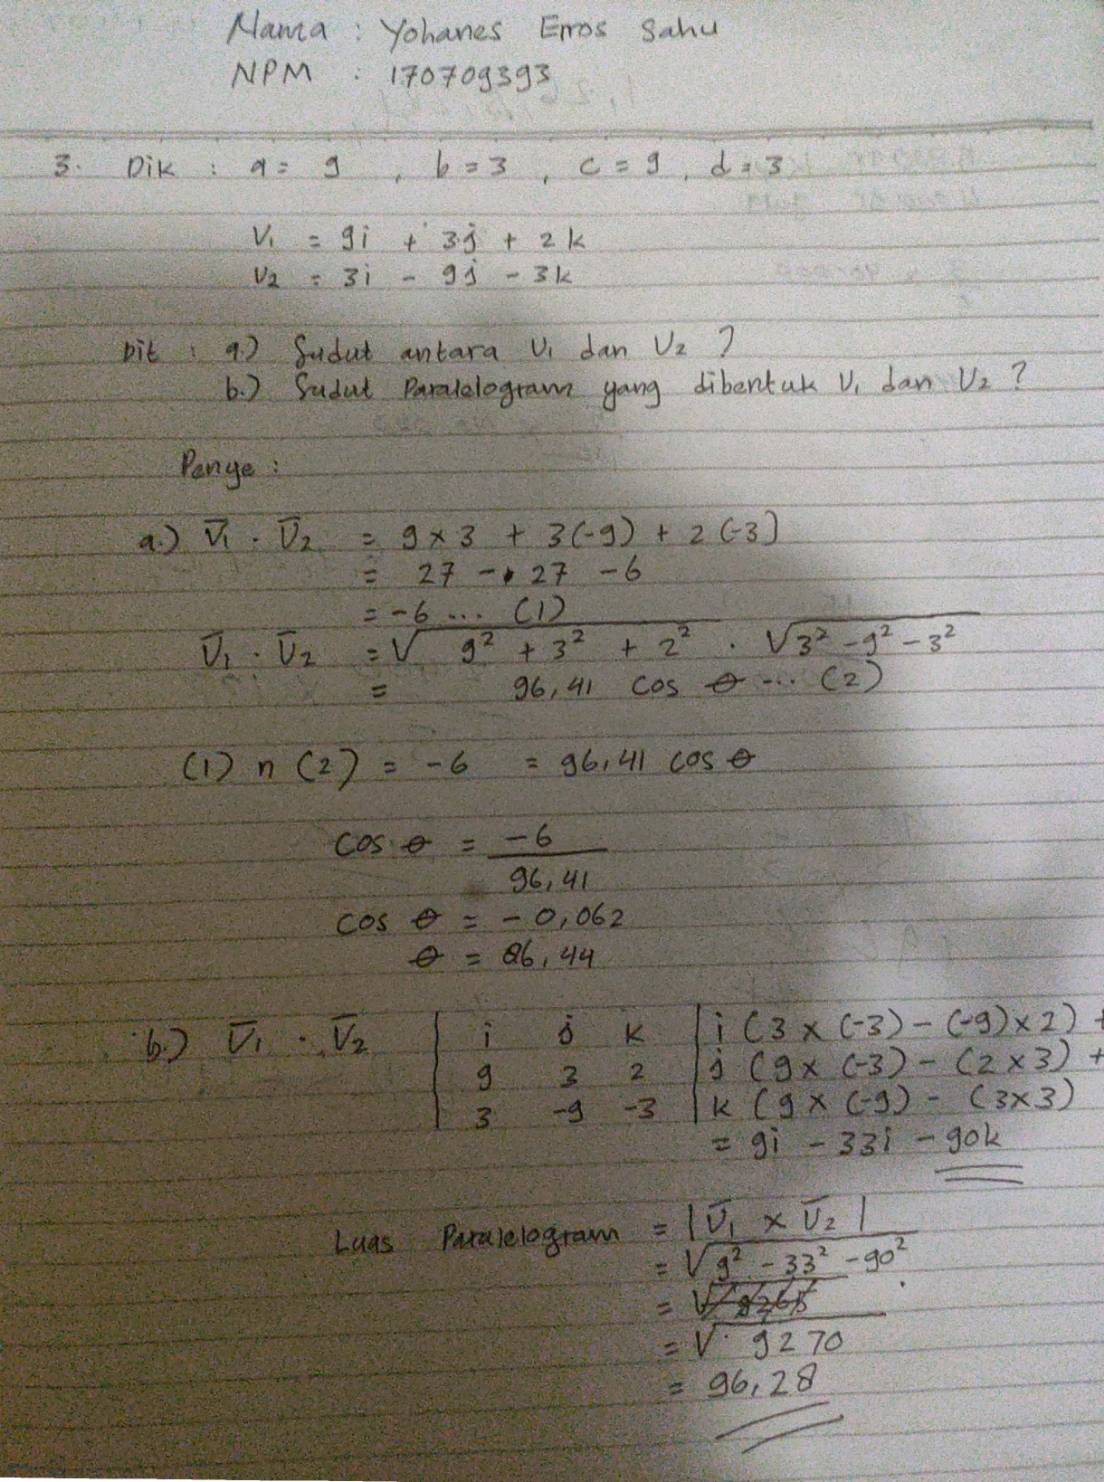 Nama : Yohanes Erros Sahu
NPM : 170709393
3. Dik : a = 9 , b = 3 , c = 9 , d = 3
V₁ = 9i + 3j + 2k
V₂ = 3i - 9j - 3k
Dit : a.) Sudut antara V₁ dan V₂ ?
b.) Sudut Paralelogram yang dibentuk V₁ dan V₂ ?
Penye :
a.) V̅₁ . V̅₂ = 9 x 3 + 3(-9) + 2 (-3)
= 27 - 27 - 6
= -6 ... (1)
V̅₁ . V̅₂ = √ 9² + 3² + 2² . √ 3² - 9² - 3²
= 96,41 cos θ ... (2)
(1) n (2) = -6 = 96,41 cos θ
cos θ = -6 / 96,41
cos θ = -0,062
θ = 86,44
b.) V̅₁ . V̅₂ | i j k | i (3 x (-3) - (-9) x 2) +
9 3 2 | j (9 x (-3) - (2 x 3) +
3 -9 -3 | k (9 x (-9) - (3x3)
= 9i - 33i - 90k
Luas Paralelogram = | V̅₁ x V̅₂ |
= √ 9² - 33² - 90²
= √ 9270
= 96,28